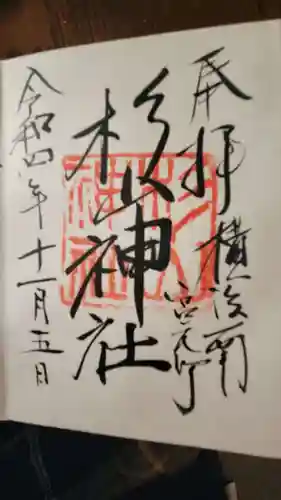 奉拝
横浜南
宮元町
杉山神社
令和四年十一月五日